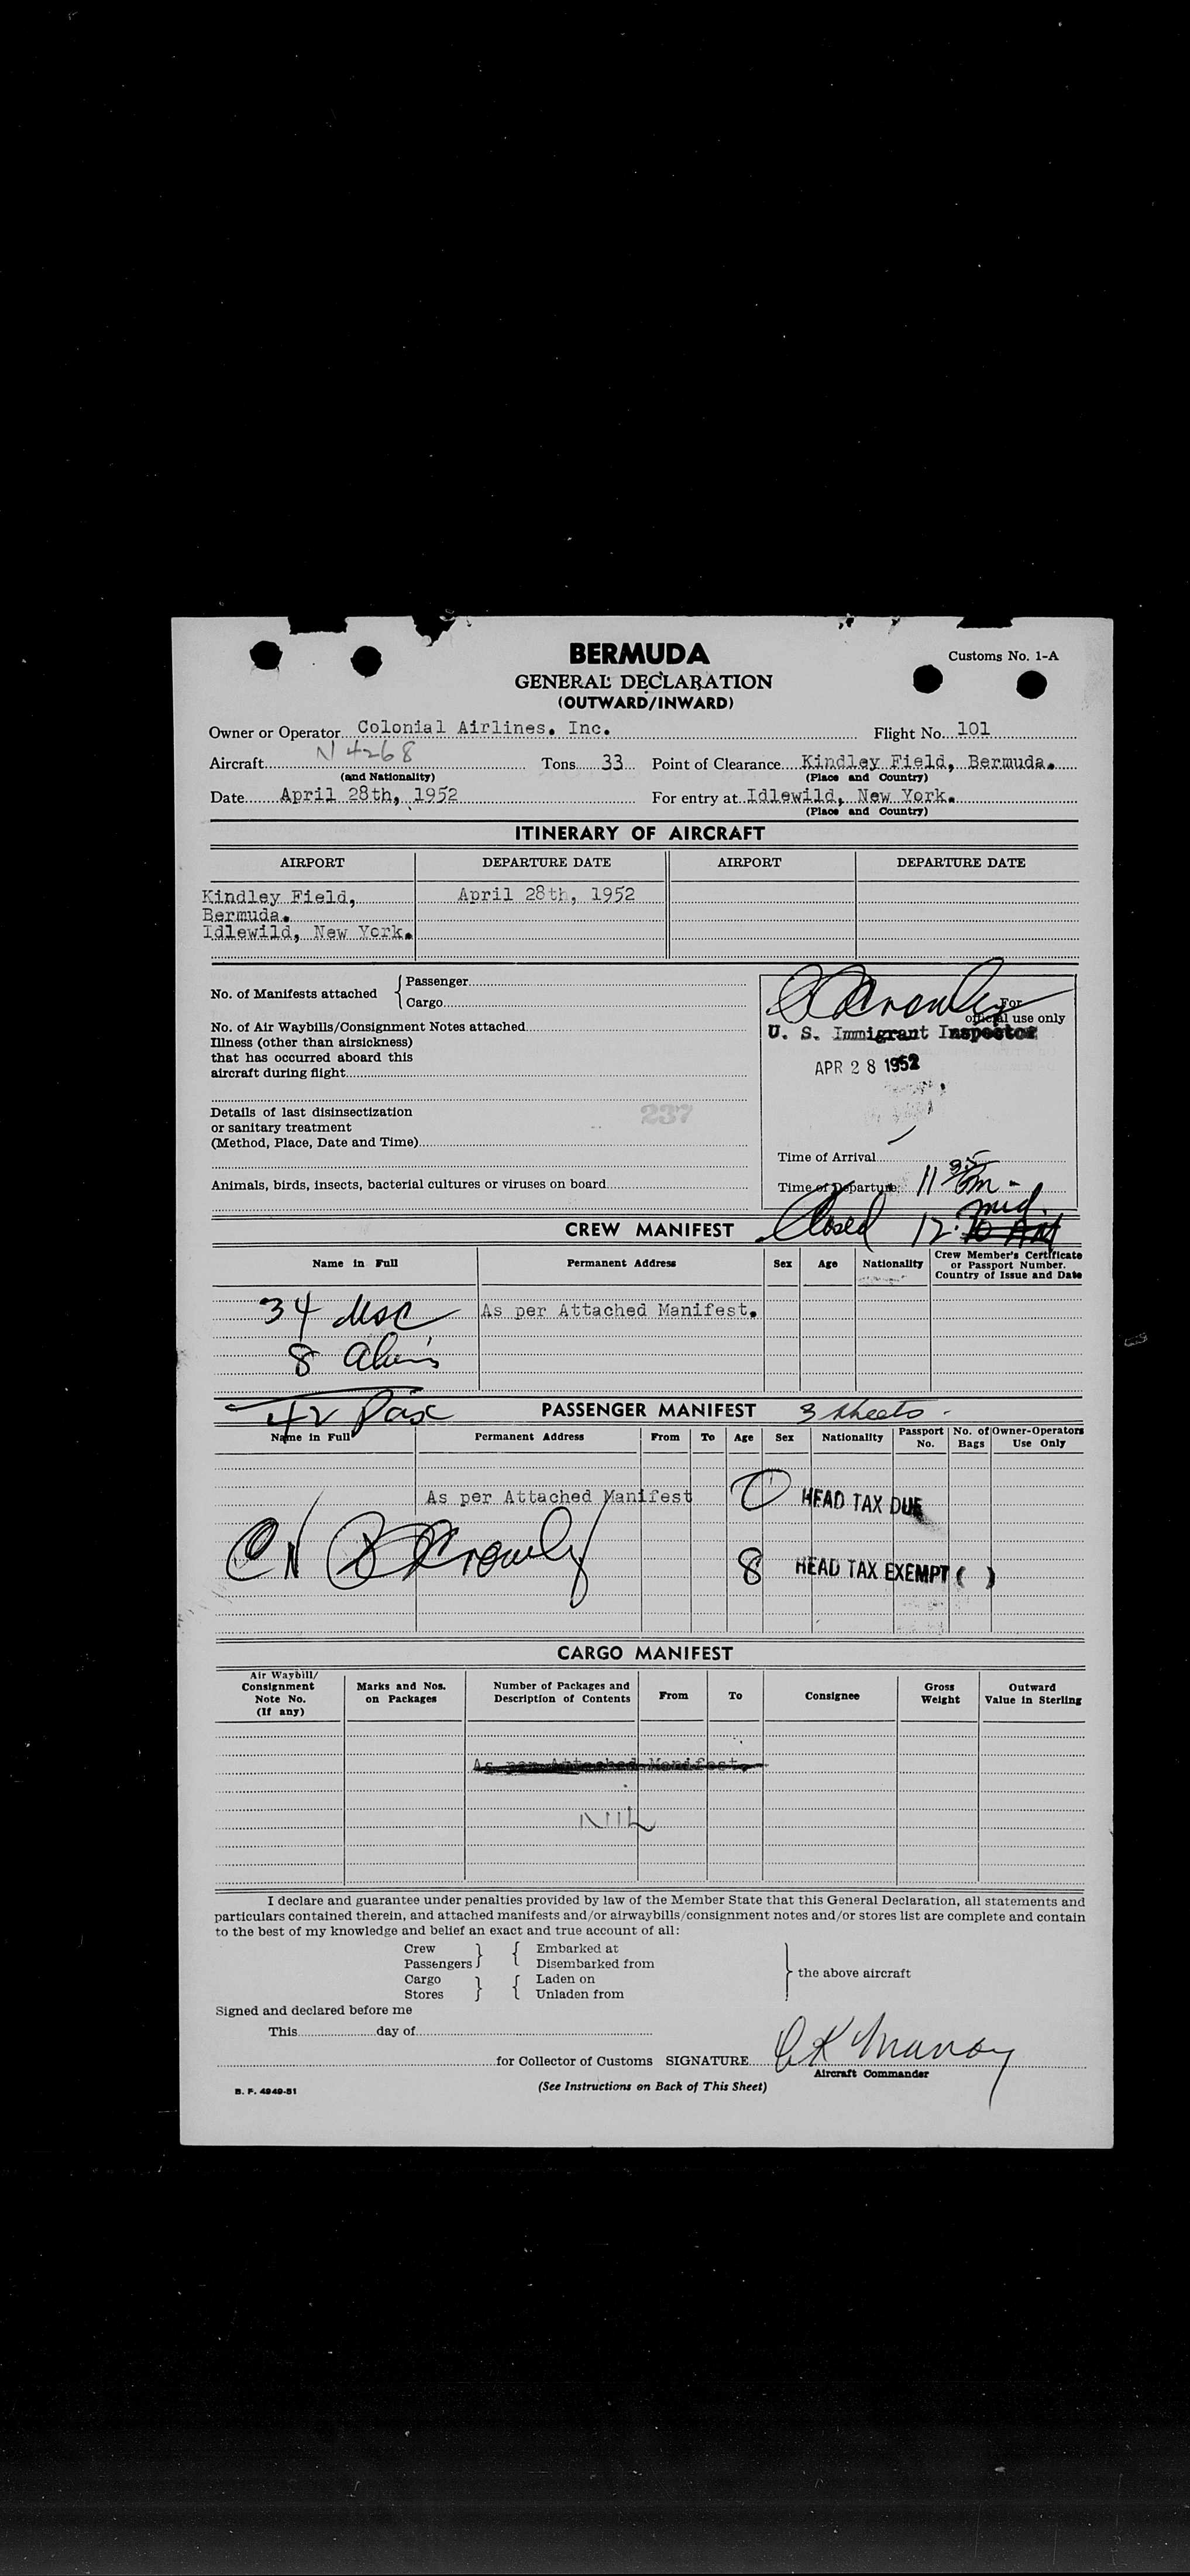 BERMUDA
Customs No. 1-A
GENERAL DECLARATION
(OUTWARD/INWARD)
Owner or Operator Colonial Airlines. Inc. Flight No. 101
Aircraft N 4268 Tons 33 Point of Clearance Kindley Field, Bermuda.
(and Nationality) (Place and Country)
Date April 28th, 1952 For entry at Idlewild, New York.
(Place and Country)
ITINERARY OF AIRCRAFT
AIRPORT DEPARTURE DATE AIRPORT DEPARTURE DATE
Kindley Field, April 28th, 1952
Bermuda.
Idlewild, New York.
No. of Manifests attached { Passenger
Cargo
For
official use only
U. S. Immigrant Inspector
APR 28 1952
No. of Air Waybills/Consignment Notes attached
Illness (other than airsickness)
that has occurred aboard this
aircraft during flight
Details of last disinsectization
or sanitary treatment
(Method, Place, Date and Time)
237
Animals, birds, insects, bacterial cultures or viruses on board
Time of Arrival
Time of Departure: 11 35 Pm -
Closed 12. mid.
CREW MANIFEST
Name in Full Permanent Address Sex Age Nationality Crew Member's Certificate
or Passport Number.
Country of Issue and Date
34 usc As per Attached Manifest.
8 aliens
42 Pax
PASSENGER MANIFEST 3 sheets -
Name in Full Permanent Address From To Age Sex Nationality Passport No. No. of Bags Owner-Operators Use Only
As per Attached Manifest 0 HEAD TAX DUE
8 HEAD TAX EXEMPT ( )
CARGO MANIFEST
Air Waybill/
Consignment
Note No.
(If any)
Marks and Nos.
on Packages
Number of Packages and
Description of Contents
From
To
Consignee
Gross
Weight
Outward
Value in Sterling
As per Attached Manifest.
NIL
I declare and guarantee under penalties provided by law of the Member State that this General Declaration, all statements and
particulars contained therein, and attached manifests and/or airwaybills/consignment notes and/or stores list are complete and contain
to the best of my knowledge and belief an exact and true account of all:
Crew } { Embarked at
Passengers Disembarked from
Cargo } { Laden on
Stores Unladen from
} the above aircraft
Signed and declared before me
This day of
for Collector of Customs SIGNATURE
Aircraft Commander
B. F. 4949-51
(See Instructions on Back of This Sheet)